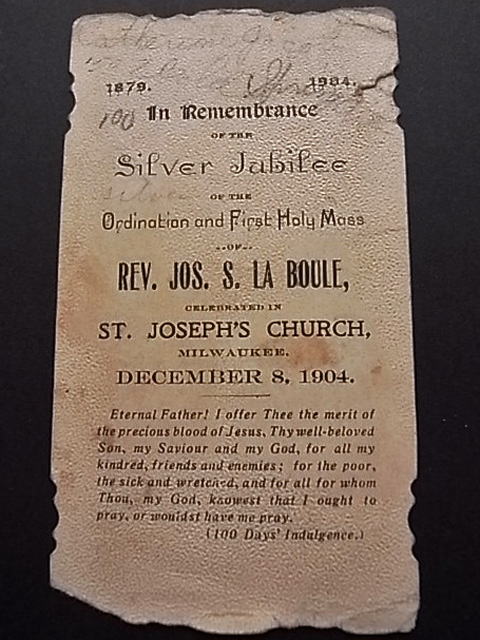 Catherine Jacob
1879. 1904.
100
In Remembrance
OF THE
Silver Jubilee
silver
OF THE
Ordination and First Holy Mass
--OF--
REV. JOS. S. LA BOULE,
CELEBRATED IN
ST. JOSEPH'S CHURCH,
MILWAUKEE.
DECEMBER 8, 1904.
Eternal Father! I offer Thee the merit of
the precious blood of Jesus, Thy well-beloved
Son, my Saviour and my God, for all my
kindred, friends and enemies; for the poor,
the sick and wretched, and for all for whom
Thou, my God, knowest that I ought to
pray, or wouldst have me pray.
(100 Days' Indulgence.)